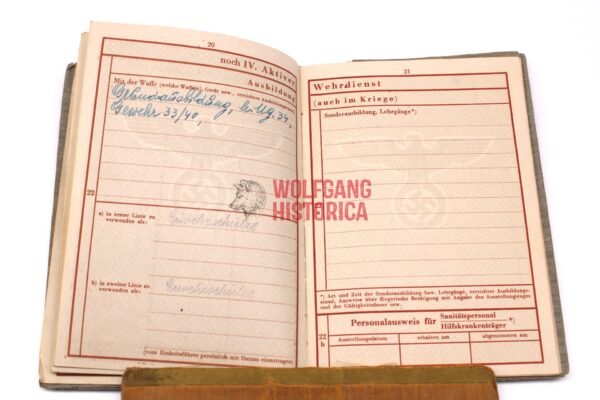 20
noch IV. Aktiver
Ausbildung
Mit der Waffe (welche Waffe(n), Gerät usw., erreichtes Ausbildungsziel)
Grundausbildung, l. M.G. 34,
Gewehr 33/40,
22
a) in erster Linie zu
verwenden als:
Gewehrschütze
b) in zweiter Linie zu
verwenden als:
Gewehrschütze
(vom Einheitsführer persönlich mit Datum einzutragen)
21
Wehrdienst
(auch im Kriege)
Sonderausbildung, Lehrgänge*)
*) Art und Zeit der Sonderausbildung bzw. Lehrgänge, erreichtes Ausbildungs-
stand, Ausweise über fliegerische Betätigung mit Angabe des Ausstellungstages
und der Gültigkeitsdauer usw.
Personalausweis für Sanitätspersonal
Hilfskrankenträger *)
22
b
Ausstellungsdatum
erhalten am
abgenommen am
WOLFGANG
HISTORICA